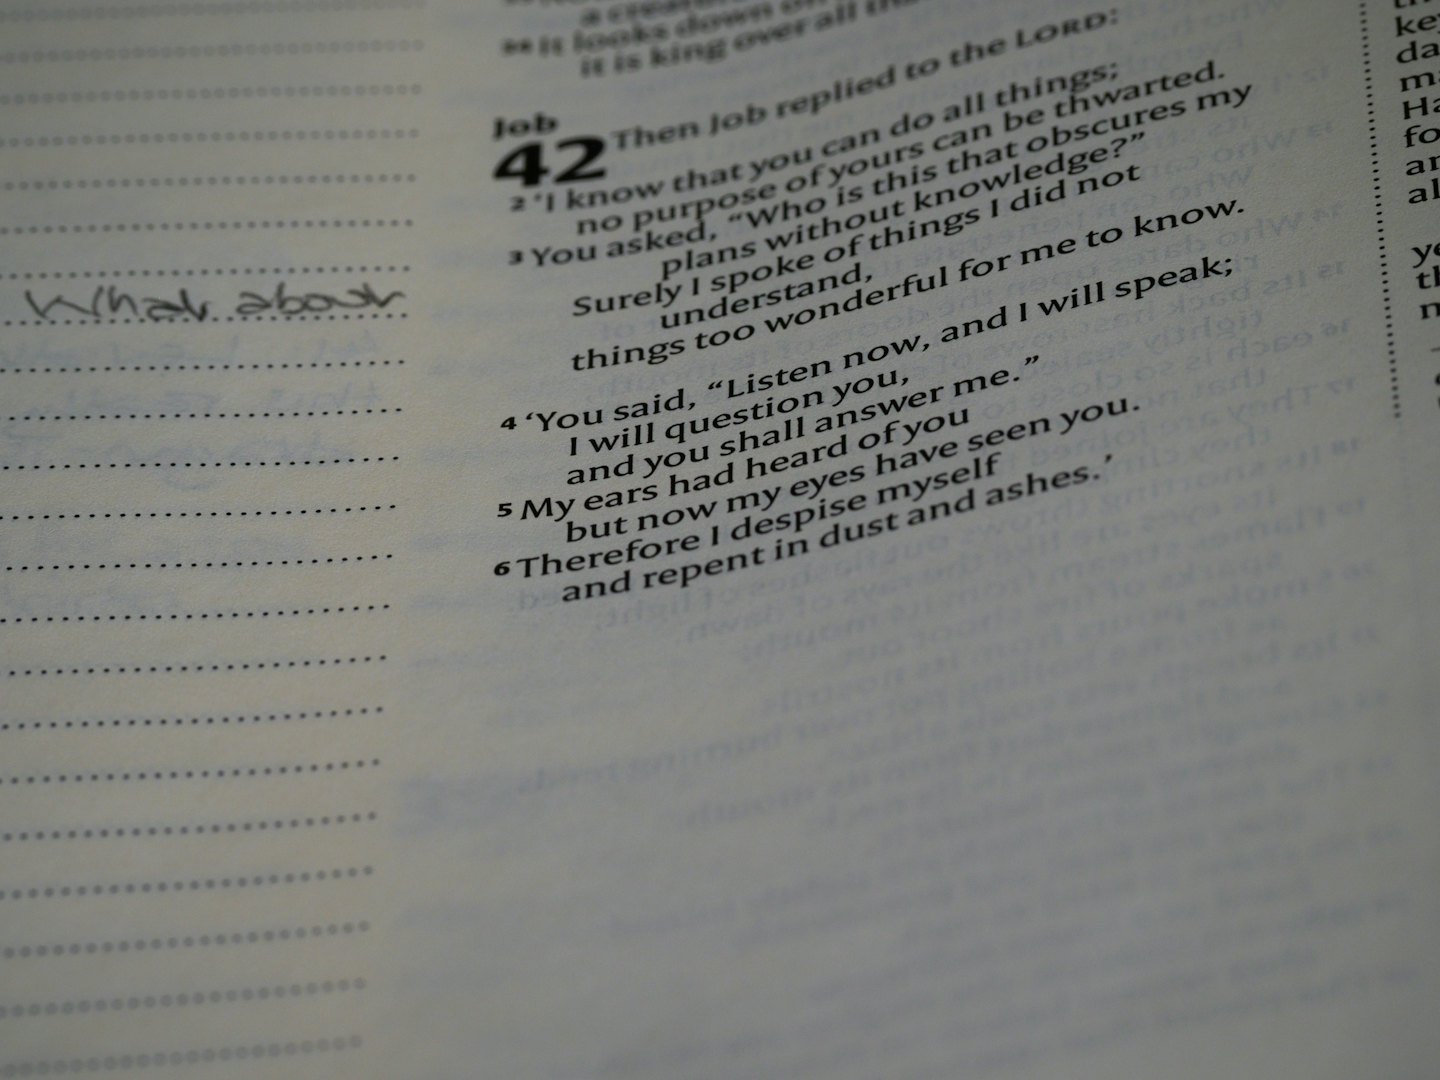 it looks down on
it is king over all
Job
42 Then Job replied to the LORD:
2 ‘I know that you can do all things;
no purpose of yours can be thwarted.
3 You asked, “Who is this that obscures my
plans without knowledge?”
Surely I spoke of things I did not
understand,
things too wonderful for me to know.
4 ‘You said, “Listen now, and I will speak;
I will question you,
and you shall answer me.”
5 My ears had heard of you
but now my eyes have seen you.
6 Therefore I despise myself
and repent in dust and ashes.’
What about